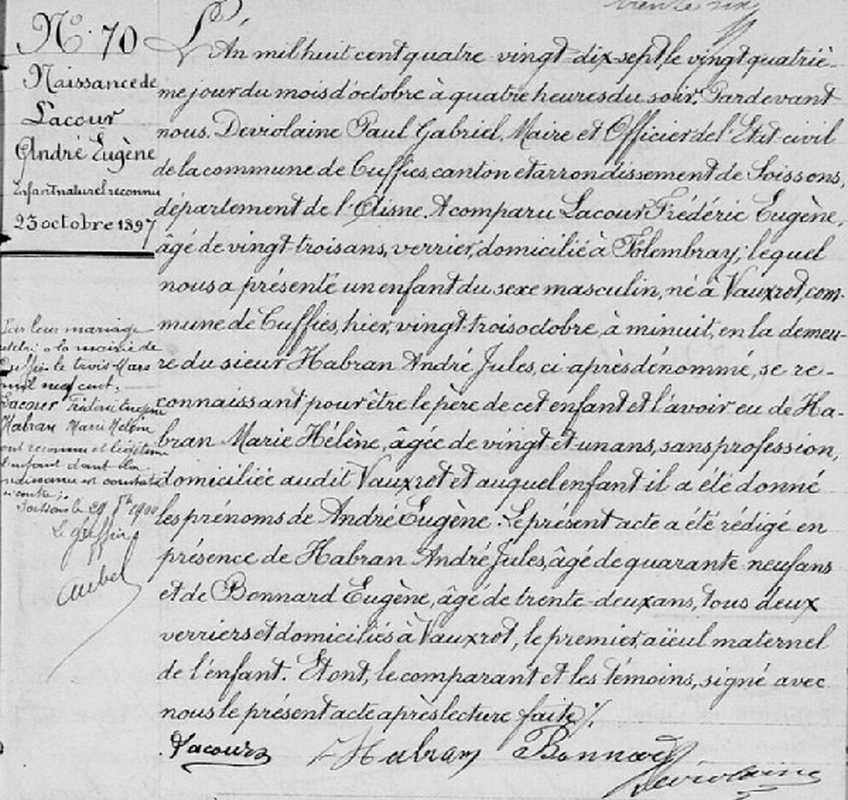 trente six
N° 70
Naissance de
Lacour
André Eugène
Enfant naturel reconnu
23 octobre 1897
L'An mil huit cent quatre vingt-dix-sept le vingt quatriè-
me jour du mois d'octobre à quatre heures du soir. Pardevant
nous. Deviolaine Paul Gabriel. Maire et Officier de l'Etat-civil
de la commune de Cuffies, canton et arrondissement de Soissons,
département de l'Aisne. A comparu Lacour Frédéric Eugène,
âgé de vingt-trois ans, verrier, domicilié à Folembray; lequel
nous a présenté un enfant du sexe masculin, né à Vauxrot, com-
mune de Cuffies, hier, vingt-trois octobre, à minuit, en la demeu-
re du sieur Habran André Jules, ci-après dénommé, se re-
connaissant pour être le père de cet enfant et l'avoir eu de Ha-
bran Marie Hélène, âgée de vingt et un ans, sans profession,
domiciliée audit Vauxrot et auquel enfant il a été donné
les prénoms de André Eugène. Le présent acte a été rédigé en
présence de Habran André Jules, âgé de quarante-neuf ans
et de Bonnard Eugène, âgé de trente-deux ans, tous deux
verriers et domiciliés à Vauxrot, le premier, aïeul maternel
de l'enfant. Et ont, le comparant et les témoins, signé avec
nous le présent acte après lecture faite ./.
Lacour Habran Bonnard
Deviolaine
Par leur mariage
célébré à la mairie de
Cuffies le trois Mars
mil neuf cent,
Lacour Frédéric Eugène
Habran Marie Hélène
ont reconnu et légitimé
l'enfant dont la
naissance est constatée
ci-contre.
Soissons le 29 1900
Le greffier
Aubel